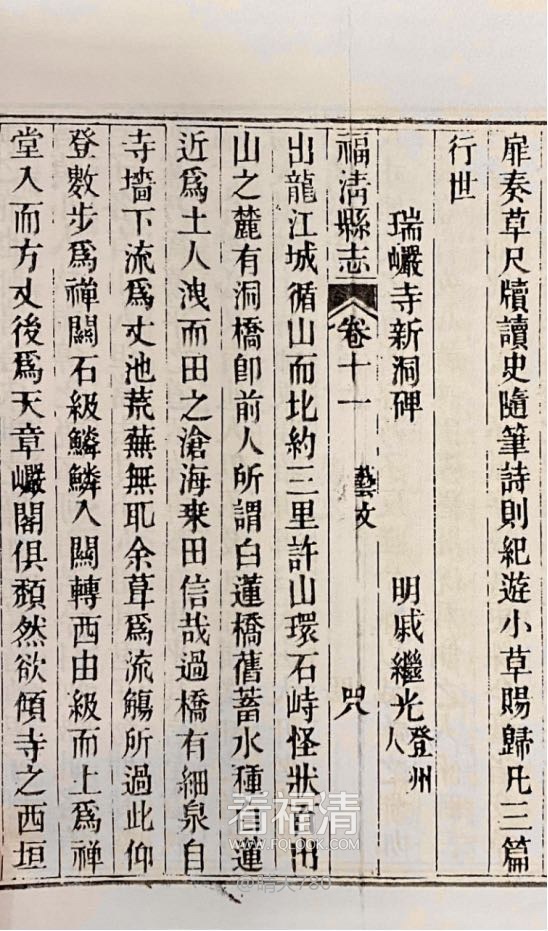 扉奏草尺牘讀史隨筆詩則紀遊小草賜歸凡三篇
行世
瑞巖寺新洞碑 明戚繼光登州人
福清縣志 卷十一 藝文
出龍江城循山而北約三里許山環石峙怪狀百出
山之麓有洞橋卽前人所謂白蓮橋舊蓄水種白蓮
近爲土人洩而田之滄海桒田信哉過橋有細泉自
寺墻下流爲丈池荒蕪無耴余葺爲流觴所過此仰
登數步爲禪關石級鱗鱗入關轉西由級而上爲禪
堂入而方丈後爲天章巖閣俱頽然欲傾寺之西垣
看福清
WWW.FQLOOK.COM